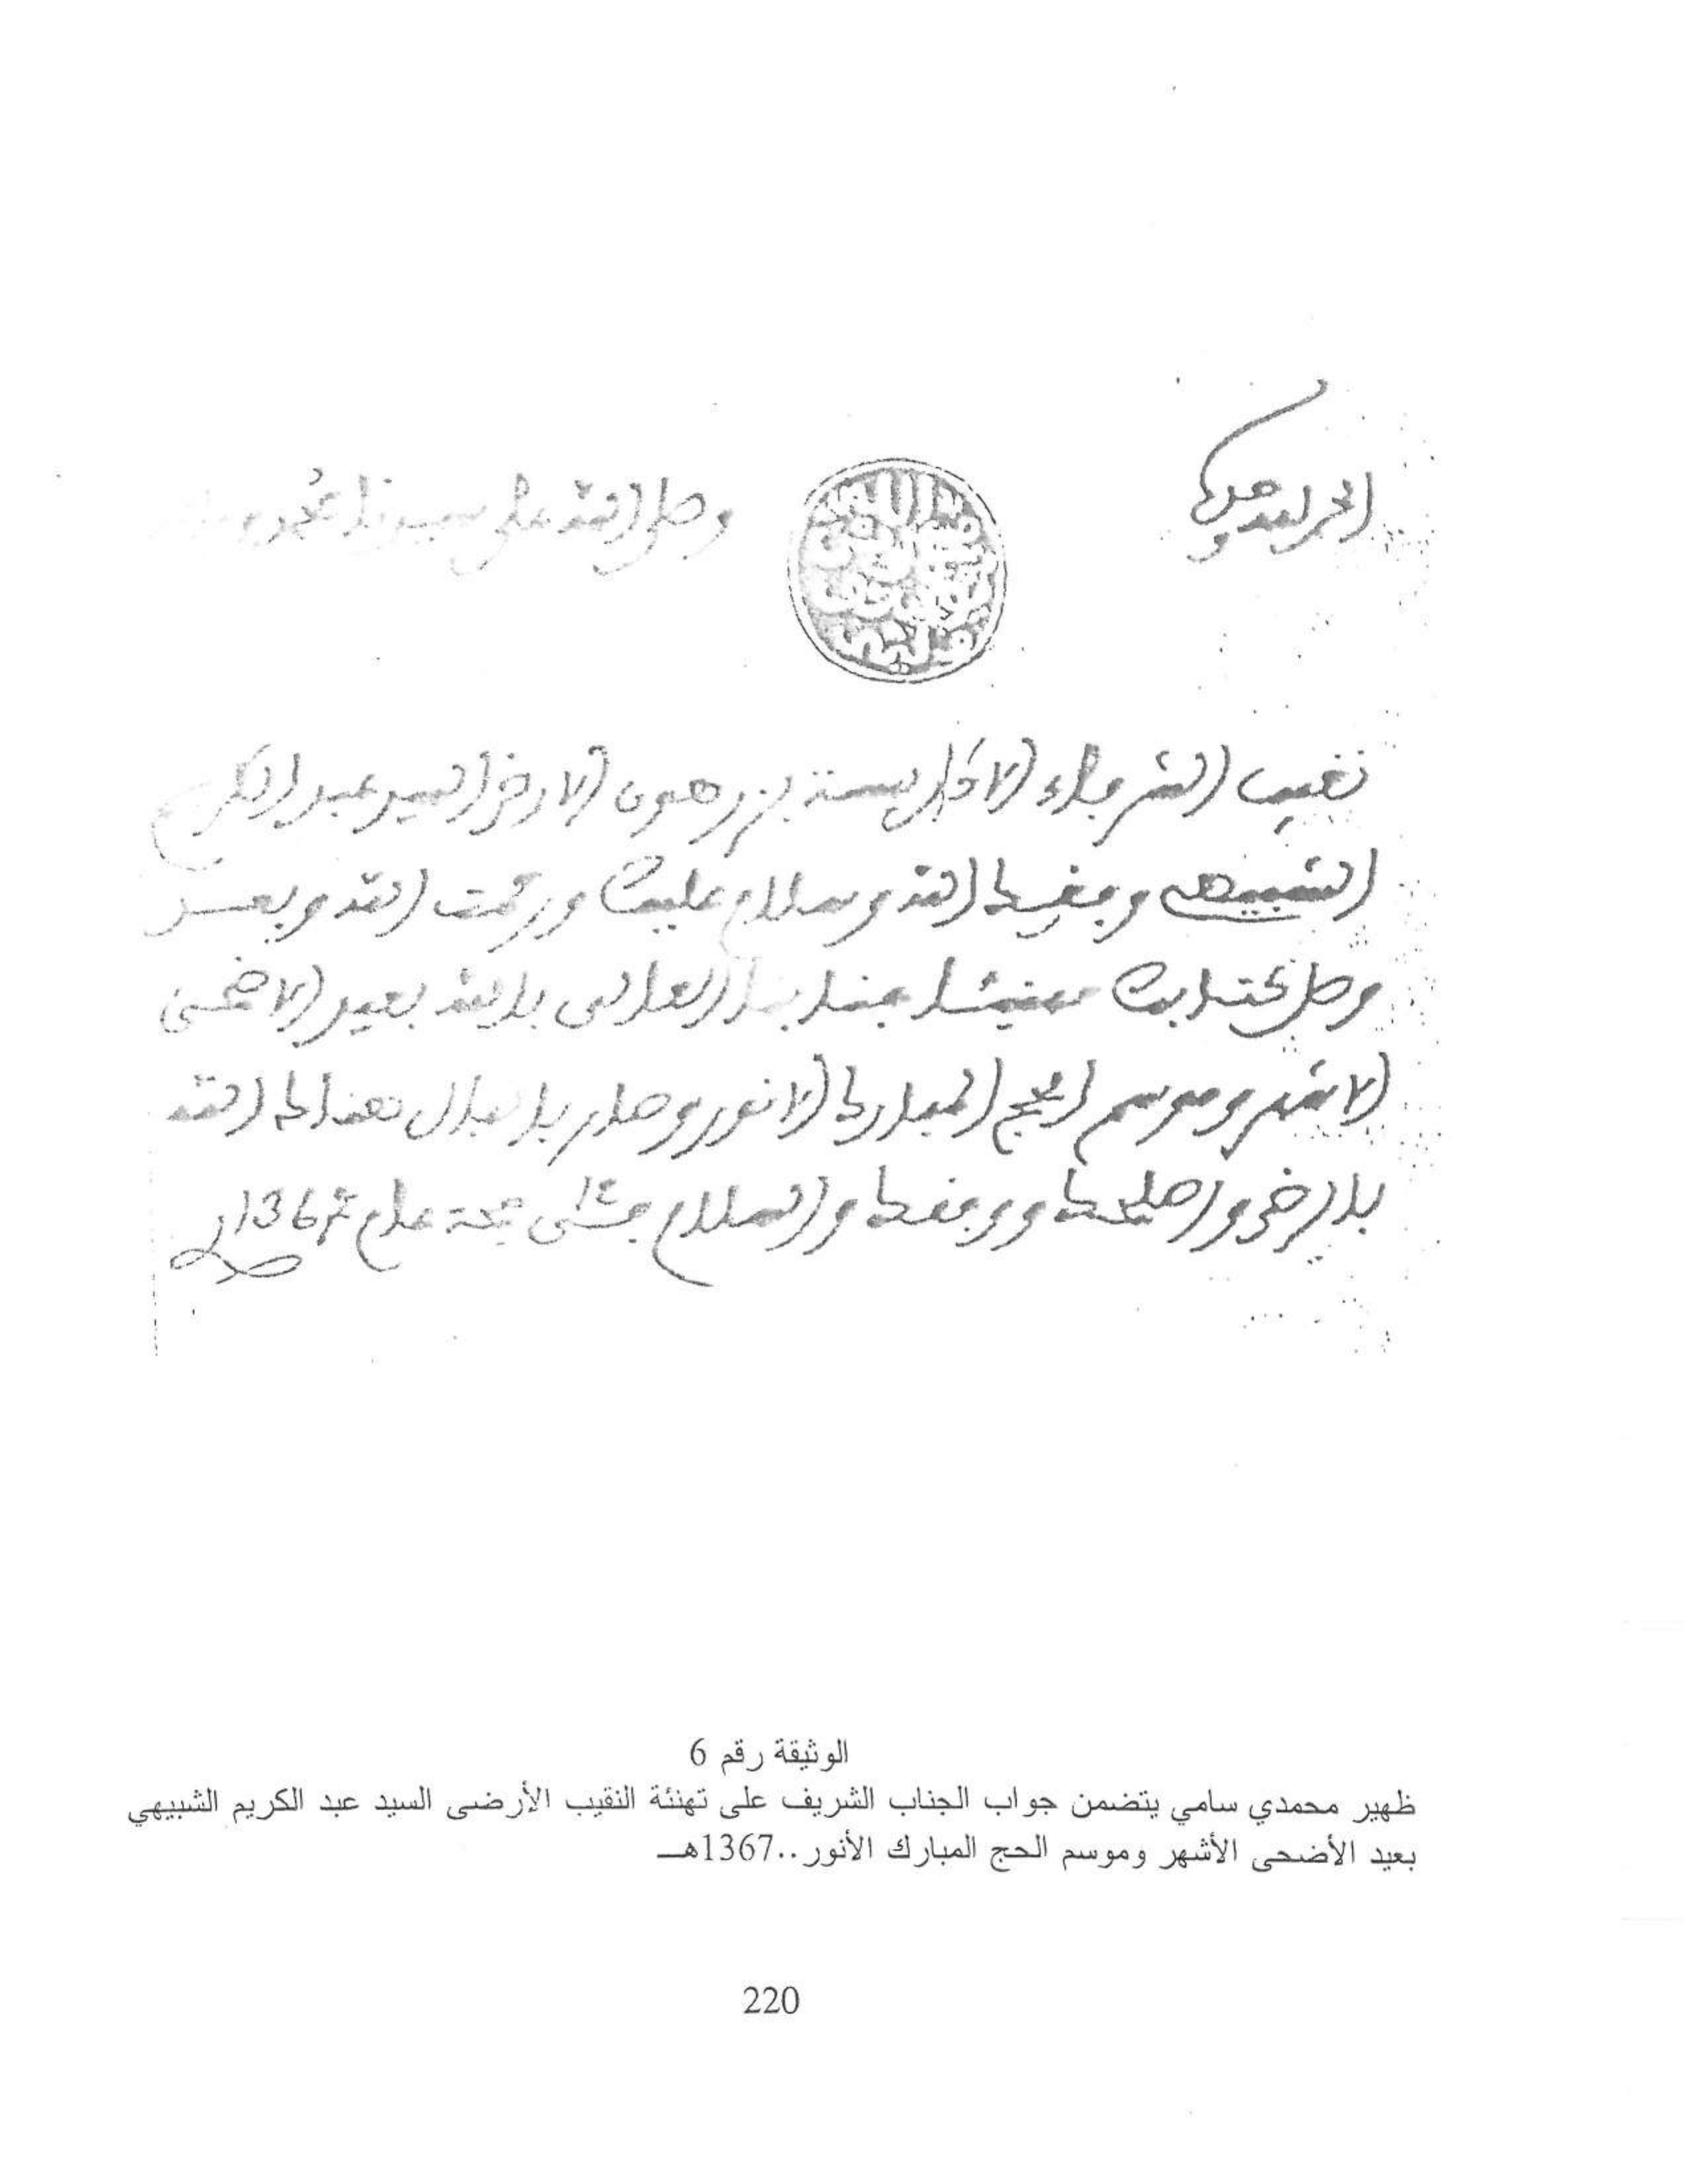 الحمد لله وحده
وصلى الله على سيدنا محمد
نقيب الشرفاء الأدارسة بزرهون الأرضى السيد عبد الكريم
الشبيهي وفقك الله وسلام عليك ورحمت الله وبعد
وصل كتابك مهنئا جنابنا العالي بالله بعيد الأضحى
الأشهر وموسم الحج المبارك الأنور وصار بالبال هناك الله
بالرضى وأصلحك ووفقك والسلام في حجة عام 1367
الوثيقة رقم 6
ظهير محمدي سامي يتضمن جواب الجناب الشريف على تهنئة النقيب الأرضى السيد عبد الكريم الشبيهي
بعيد الأضحى الأشهر وموسم الحج المبارك الأنور..1367هـ
220